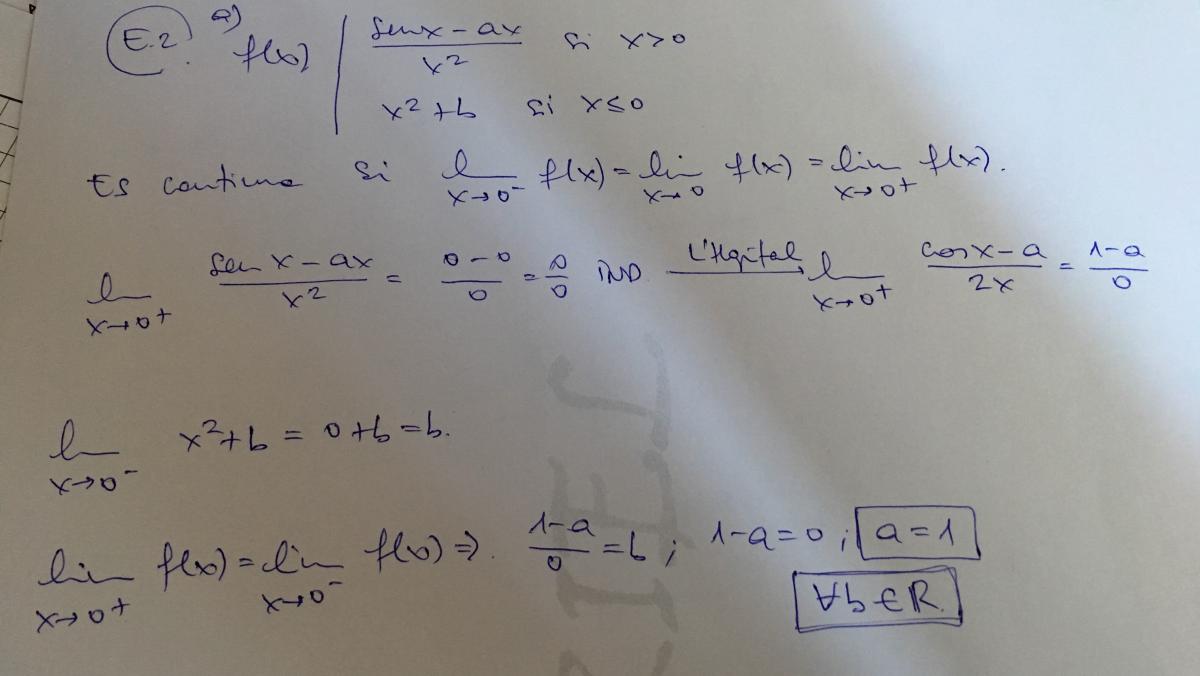 E.2. a) f(x) | (sen x - ax)/x² si x>0
x² + b si x≤0
Es continua si lim x→0⁻ f(x) = lim x→0 f(x) = lim x→0⁺ f(x).
lim x→0⁺ (sen x - ax)/x² = (0-0)/0 = 0/0 IND. L'Hopital→ lim x→0⁺ (cos x - a)/2x = (1-a)/0
lim x→0⁻ x² + b = 0 + b = b.
lim x→0⁺ f(x) = lim x→0⁻ f(x) ⇒. (1-a)/0 = b; 1-a=0; a=1
∀b∈R.